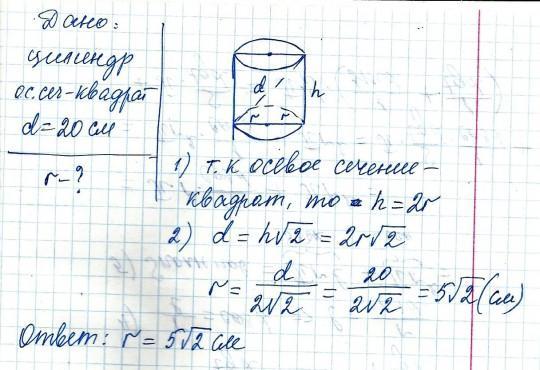 Дано:
цилиндр
ос.сеч-квадрат
d=20см
r-?
d
h
r r
1) т.к осевое сечение-
квадрат, то h=2r
2) d=h√2=2r√2
r=d/2√2=20/2√2=5√2(см)
Ответ: r=5√2см